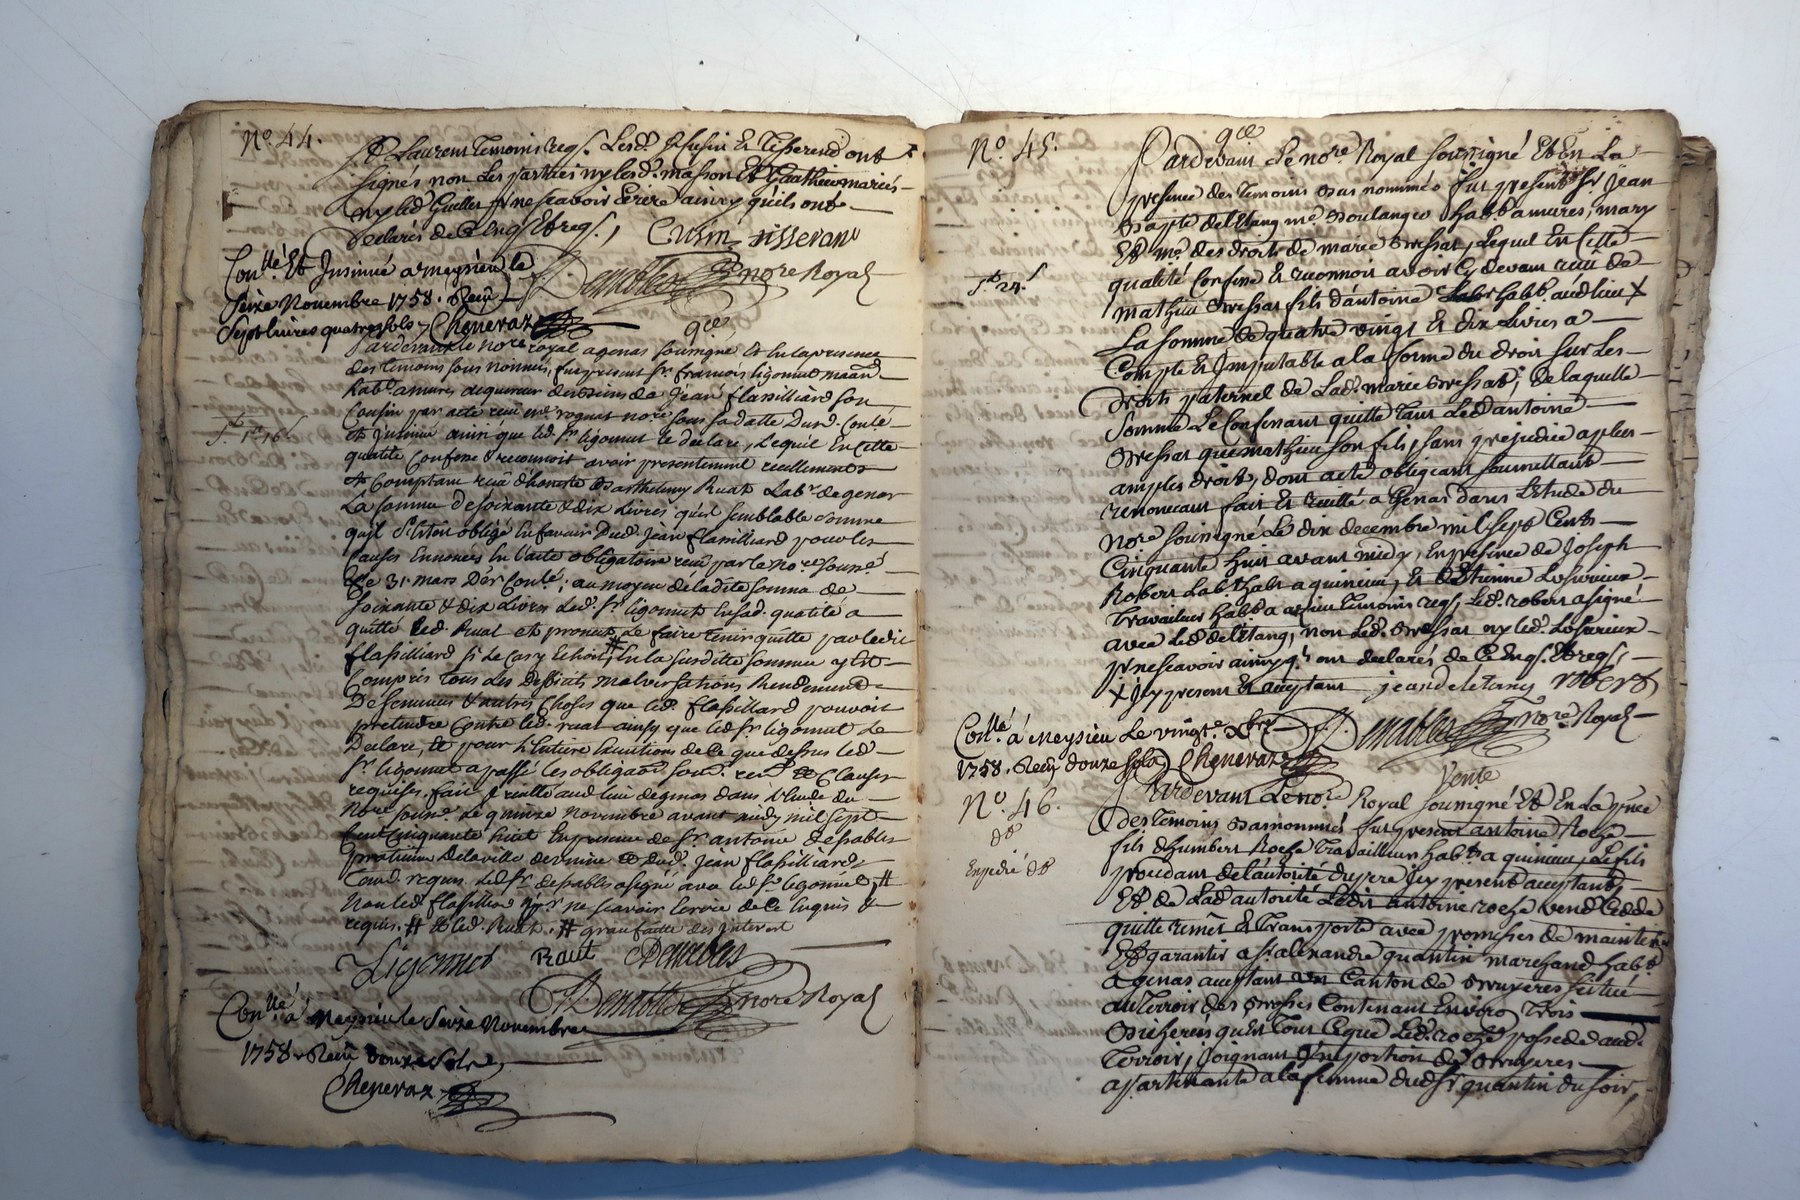 N.º 44.
Laurent temoins req. Lesd. Cusin et tisserend ont
signés non Les parties ny led. masson et mariés
ny led. Guillet pr ne scavoir Ecrire ainsy qu'ils ont
declarés de ce enq. Et req.
Cusin tisserand
Denobles nore Royal
Conllé Et Insinué a meysieu le
seize Novembre 1758. Reçu
Sept livres quatre sols Chenevaz
qce
Pardevant le nore royal a genas soussigné Et En la presence
des temoins sous nommés, fut present sr. francois ligonnet
habt. amures acquereur des biens de Jean flassilliard son
Cousin par acte reçu me nore. sous sa datte Dund. Conlé
et Insinué ainsi que led. sr. ligonnet le declare, Lequel En Cette
qualité Confesse & reconnoit avoir presentement reellement
et Comptant reçu d'honeste Barthelemy Ruat Labr. de genas
La somme de soixante & dix Livres qu'il semblable somme
qu'il s'Etoit obligé En faveur Dud. Jean flassilliard pour les
Causes Enoncées En l'acte obligatoire reçu par le nore. sousné.
Le 31 mars Der Conlé; au moyen de ladite somme de
soixante & dix Livres Led. sr. ligonnet En sad. qualité a
quitté led. Ruat et promet Le faire tenir quitte par ledit
flassilliard si Le Cas y Echoit, # En la susditte somme y Est
Compris tous Les deffauts malversations Rendement
De semences & autres Choses que led. flassilliard pouvoit
pretendre Contre led. ruat ainsy que led. sr. ligonnet Le
Declare, et pour L'Entiere Execution de Ce que dessus led.
sr. ligonnet a passé les obligaons. soud. renon. & Clauses
requises, fait & recitté aud. lieu de genas dans L'Etude du
Nore. sousné. Le quinze Novembre avant midy mil sept
Cent Cinquante huit En presence de sr. antoine
praticien de la ville de & Dud. Jean flassilliard
req. Led. sr. a signé avec led. sr. ligonnet, #
Non led. flassilliard pr. ne scavoir Ecrire de ce Enquis &
requis. # & led. Ruat. # grau faitte des Interet
Ligonnet Raut
Denobles nore Royal
Conllé á Meysieu le seize Novembre
1758. Reçu douze sols
Chenevaz
N.º 45.
qce
Pardevant Le nore. Royal soussigné Et En La
presence des temoins Bas nommés fut present sr. Jean
Bapte. delEtang me. Boulanger habt. amures, mary
Et me. des droits de marie Bressat, Lequel En Cette
qualité Confesse Et reconnoit avoir Cy devant reçu de
mathieu Bressat fils d'antoine habt. aud. lieu X
La somme de quatre vingt Et dix Livres a
Compte Et Imputable a la forme du droit sur Les
droits paternel de Lad. marie Bressat; de laquelle
somme Le Confessant quitte tant Led. antoine
Bressat que mathieu son fils, sans prejudice a plus
amples droits, dont acte obligeant soumettant
renoncant fait Et recitté a Genas dans L'Etude du
nore soussigné Le dix decembre mil sept Cents
Cinquante huit avant midy, En presence de Joseph
Robert Labr. habt. a quincieu, Et d'Etienne
Travailleur habt. a temoins req. Led. robert a signé
avec Led. delEtang, non Led. Bressat ny led.
pr ne scavoir ainsy q. ont declarés de ce Enq. Et req.
X Icy present Et acceptant jean deletang robert
Denobles nore. Royal
Conllé. á Meysieu Le vingte Xbre
1758. Reçu douze sols Chenevaz
N.º 46.
Vente
Expedié
Pardevant Le nore Royal soussigné Et En La pnce
des temoins Bas nommés fut present antoine Roche
fils d'humbert Roche travailleur habt. a quincieu, Le fils
procedant de l'autorité du pere Icy present acceptant
Et de Lad. autorité Ledit antoine roche vend Cede
quitte remet Et transporte avec promesses de mainten
Et garantir a sr. alexandre quantin marchand habt.
a genas acceptant un Canton de Bruyeres scitué
au Terroir des Brosses Contenant Environ Trois
Bicherees qu'Est tout Ce que Led. roche possede aud.
Terroir, Joignant portion de Bruyeres
appartenante a la femme dud. sr. quantin du soir,